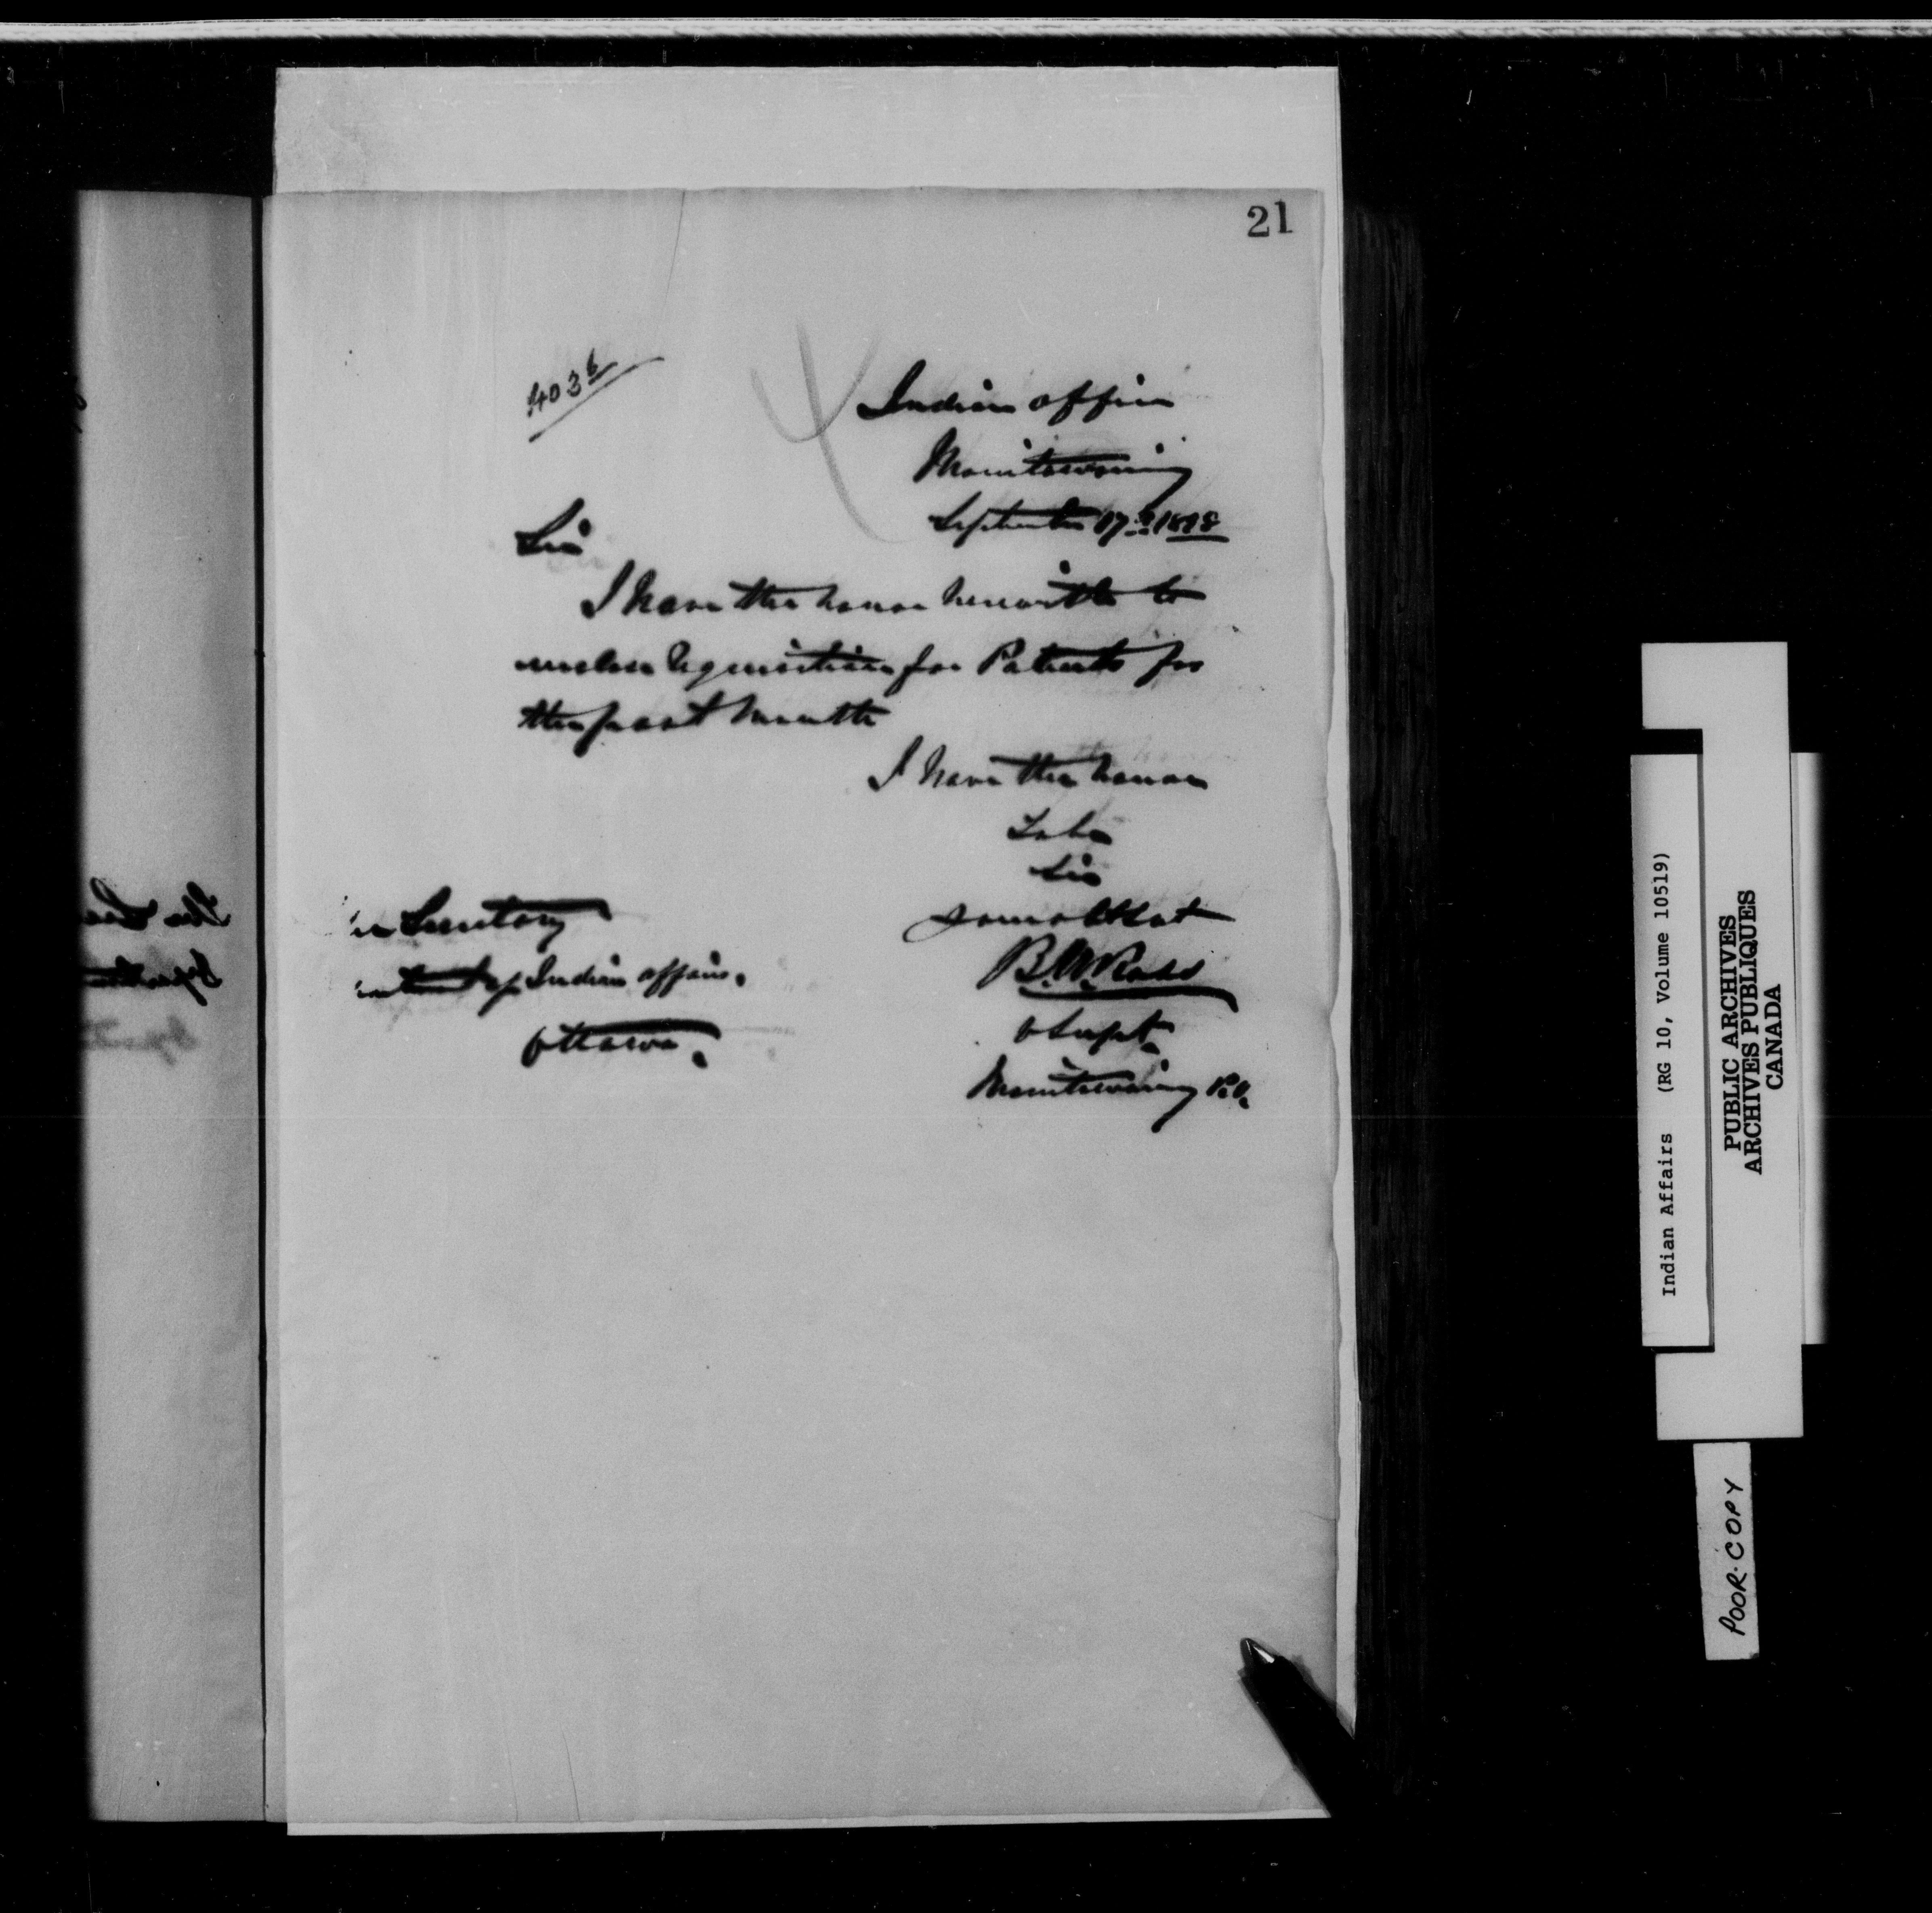 21
4036
Indian Office
Manitowaning
September 17th 1898
Sir
I have the honor herewith to
enclose Requisition for Patents for
the past month
I have the honor
To be
Sir
Your obt Sert
B. W. Ross
Supt.
Manitowaning P.O.
Secretary
of Indian affairs.
Ottawa.
Indian Affairs (RG 10, Volume 10519)
PUBLIC ARCHIVES
ARCHIVES PUBLIQUES
CANADA
POOR-COPY